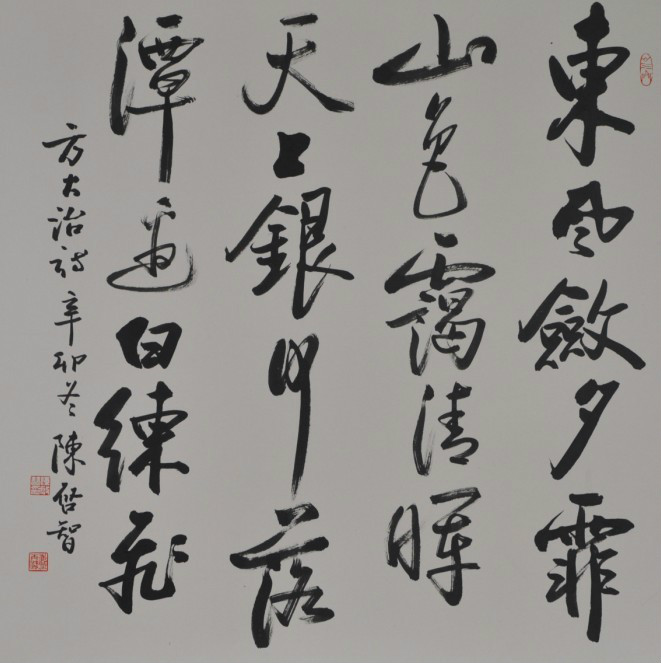 東風斂夕霏
山色靄清暉
天上銀河落
潭邊白練飛
方大治詩辛卯冬陳啓智